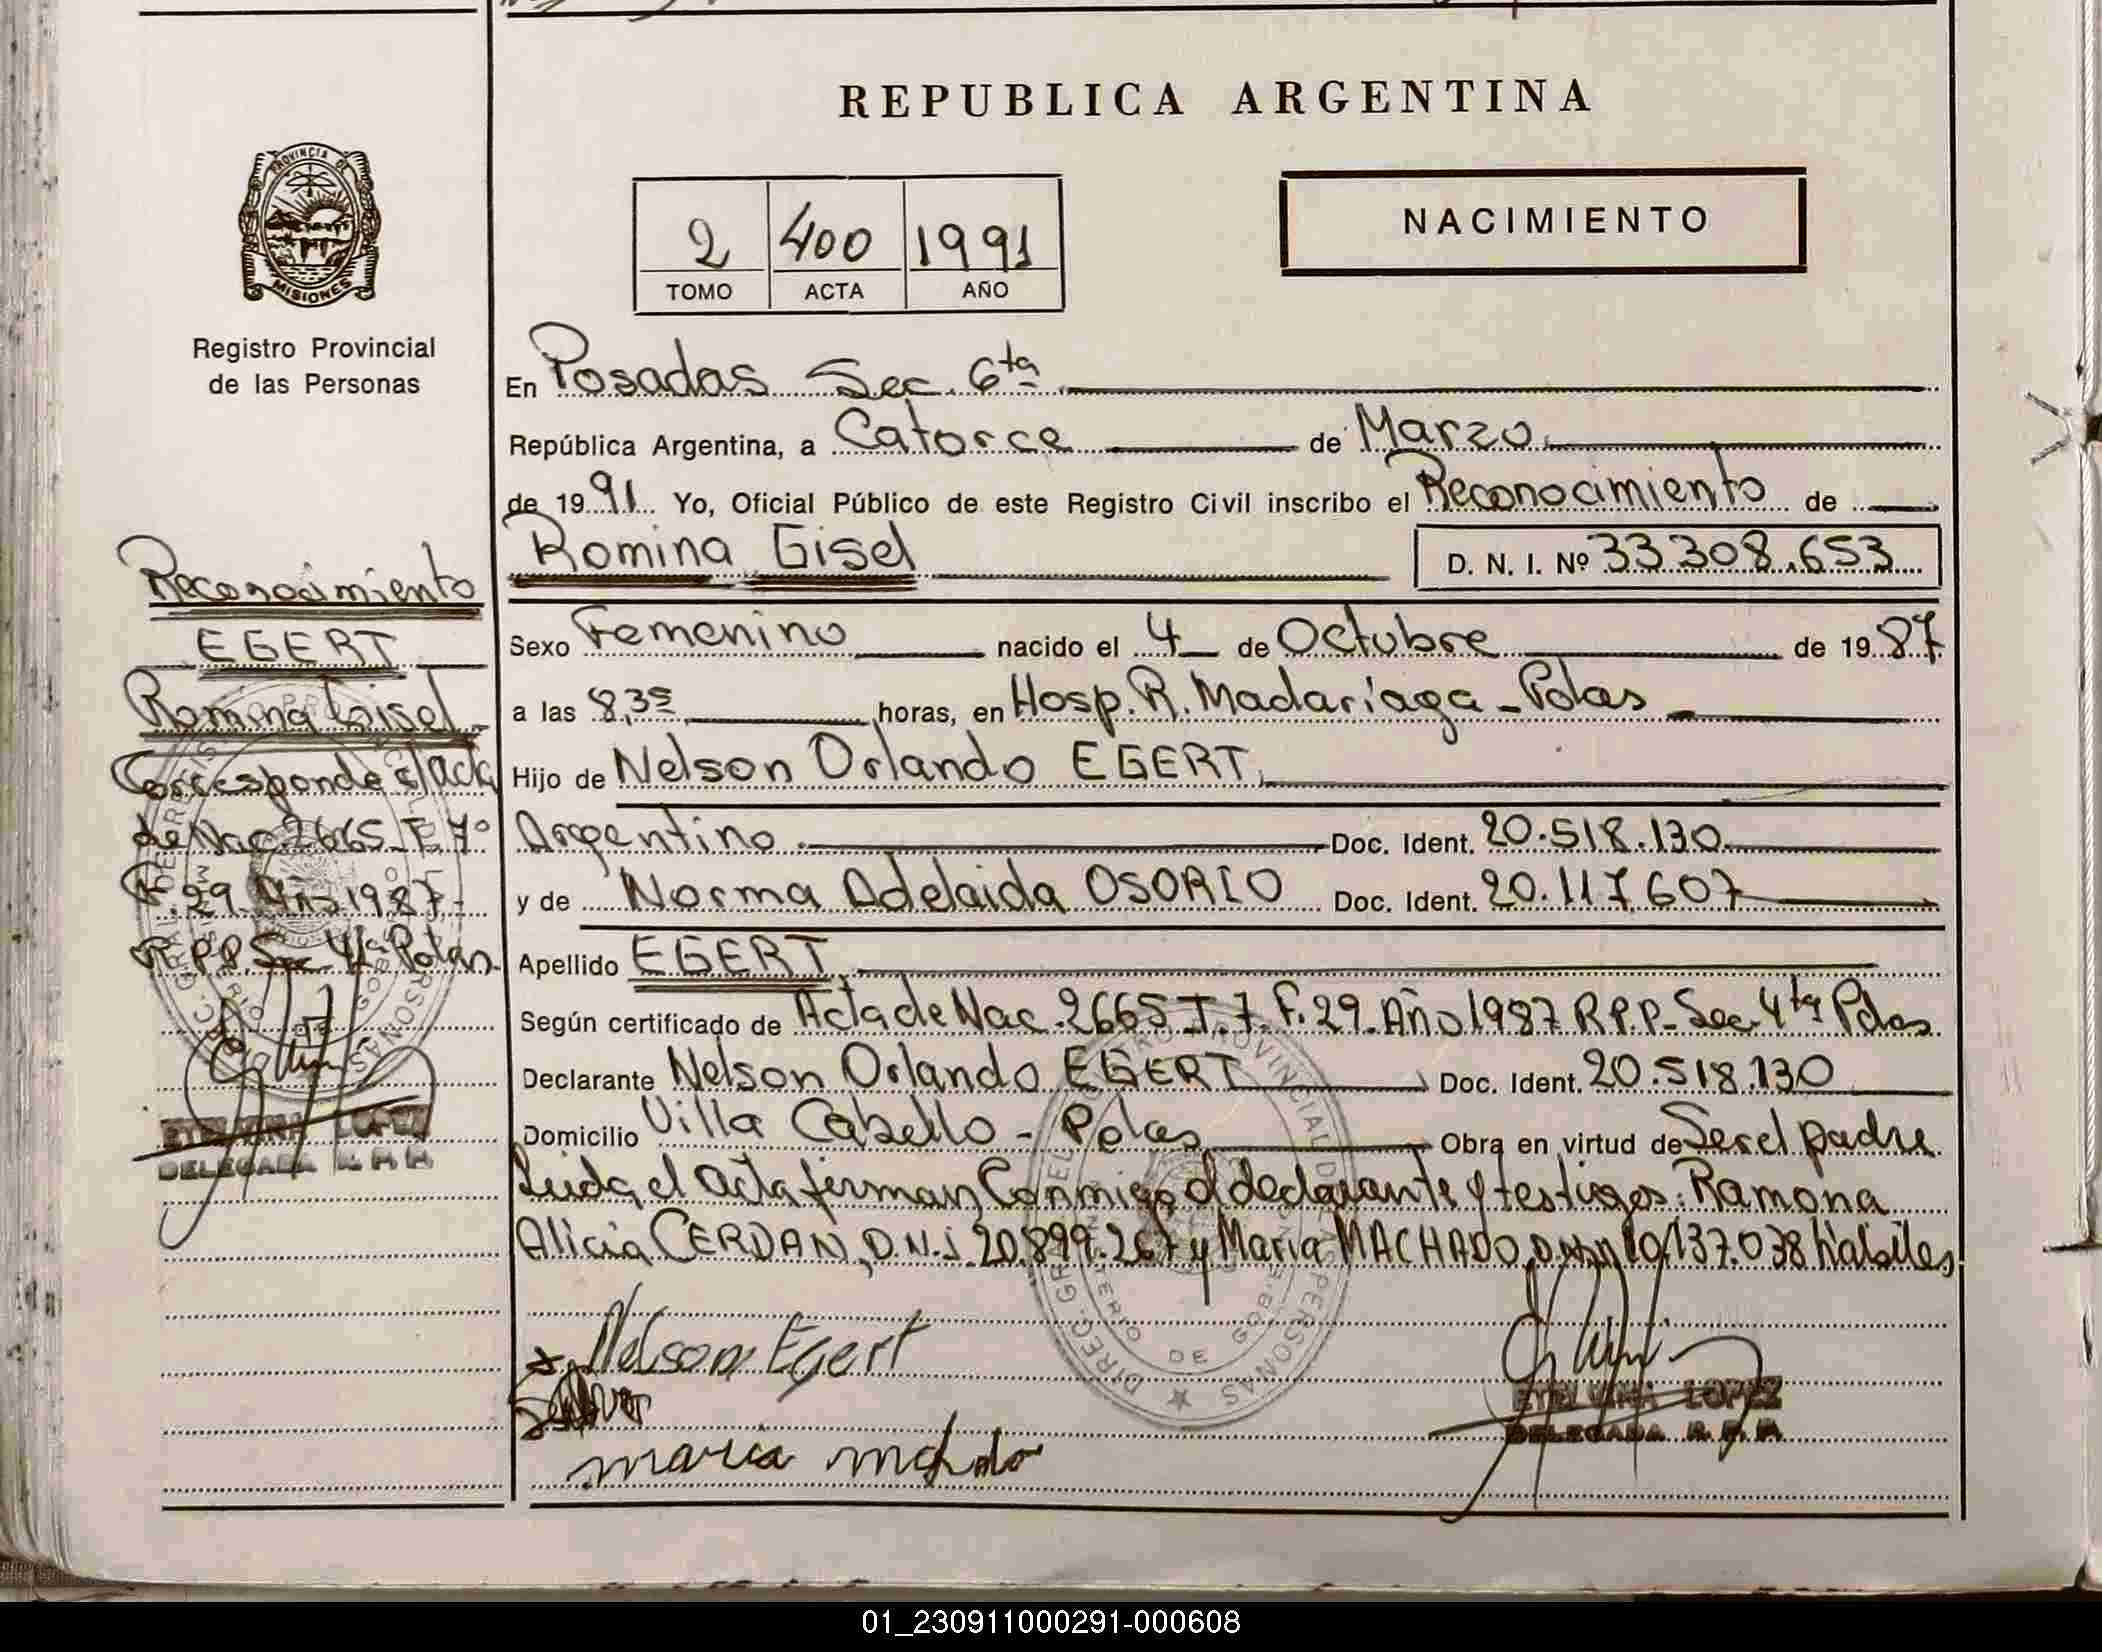 REPUBLICA ARGENTINA
PROVINCIA DE
MISIONES
Registro Provincial
de las Personas
2 400 1991
TOMO ACTA AÑO
NACIMIENTO
En Posadas Sec. 6ta
República Argentina, a Catorce de Marzo
de 1991 Yo, Oficial Público de este Registro Civil inscribo el Reconocimiento de
Romina Gisel D. N. I. Nº 33.308.653
Sexo Femenino nacido el 4 de Octubre de 1987
a las 8,35 horas, en Hosp. R. Madariaga - Pdas
Hijo de Nelson Orlando EGERT
Argentino Doc. Ident. 20.518.130
y de Norma Adelaida OSORIO Doc. Ident. 20.117.607
Apellido EGERT
Según certificado de Acta de Nac. 2665 T. 7. F. 29. Año 1987 R.P.P. Sec. 4ta Pdas
Declarante Nelson Orlando EGERT Doc. Ident. 20.518.130
Domicilio Villa Cabello - Pdas Obra en virtud de Ser el padre
Leida el acta firman Conmigo el declarante y testigos: Ramona
Alicia CERDAN, D.N.I. 20.899.267 y Maria MACHADO D.N.I. 10.137.038 habiles
Nelson Egert
maria
ETELVINA LOPEZ
DELEGADA R. P. P.
Reconocimiento
EGERT
Romina Gisel
Corresponde a/Acta
de Nac. 2665 T. 7º
F. 29 Año 1987
R.P.P. Sec 4ta Pdas
ETELVINA LOPEZ
DELEGADA R. P. P.
01_230911000291-000608